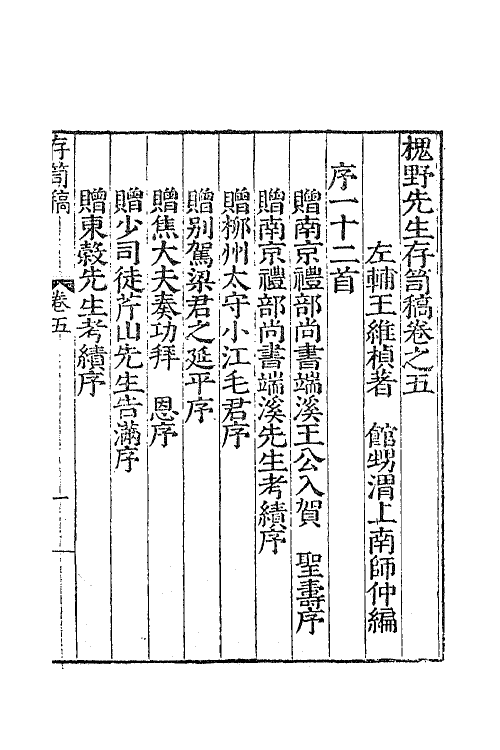 槐野先生存笥稿卷之五
左輔王維楨著　館甥渭上南師仲編
序一十二首
贈南京禮部尚書端溪王公入賀　聖壽序
贈南京禮部尚書端溪先生考績序
贈柳州太守小江毛君序
贈别駕梁君之延平序
贈焦大夫奏功拜　恩序
贈少司徒芹山先生告滿序
贈東縠先生考績序
存笥稿　卷五　一